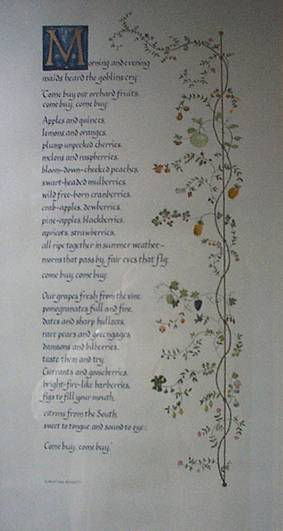 Morning and evening
maids heard the goblins cry
"Come buy our orchard fruits,
come buy, come buy:
Apples and quinces,
lemons and oranges,
plump unpecked cherries,
melons and raspberries,
bloom-down-cheeked peaches,
swart-headed mulberries,
wild free-born cranberries,
crab-apples, dewberries,
pine-apples, blackberries,
apricots, strawberries,
all ripe together in summer weather–
morns that pass by, fair eves that fly;
come buy, come buy:
Our grapes fresh from the vine,
pomegranates full and fine,
dates and sharp bullaces,
rare pears and greengages,
damsons and bilberries,
taste them and try:
Currants and gooseberries,
bright-fire-like barberries,
figs to fill your mouth,
citrons from the South,
sweet to tongue and sound to eye;
Come buy, come buy."
CHRISTINA ROSSETTI